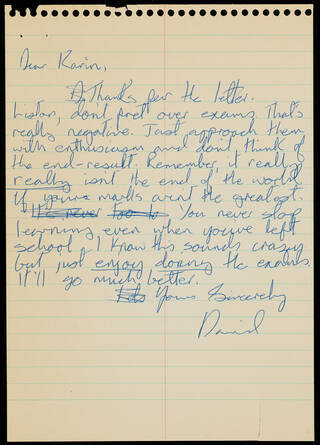 Dear Karin,
Thanks for the letter.
Listen, don't fret over exams. That's
really negative. Just approach them
with enthusiasm and don't think of
the end-result. Remember, it really
really isn't the end of the world
if your marks aren't the greatest.
It's never too la You never stop
learning even when you've left
school. I know this sounds crazy
but just enjoy doing the exams.
It'll go much better.
Yours Sincerely
David